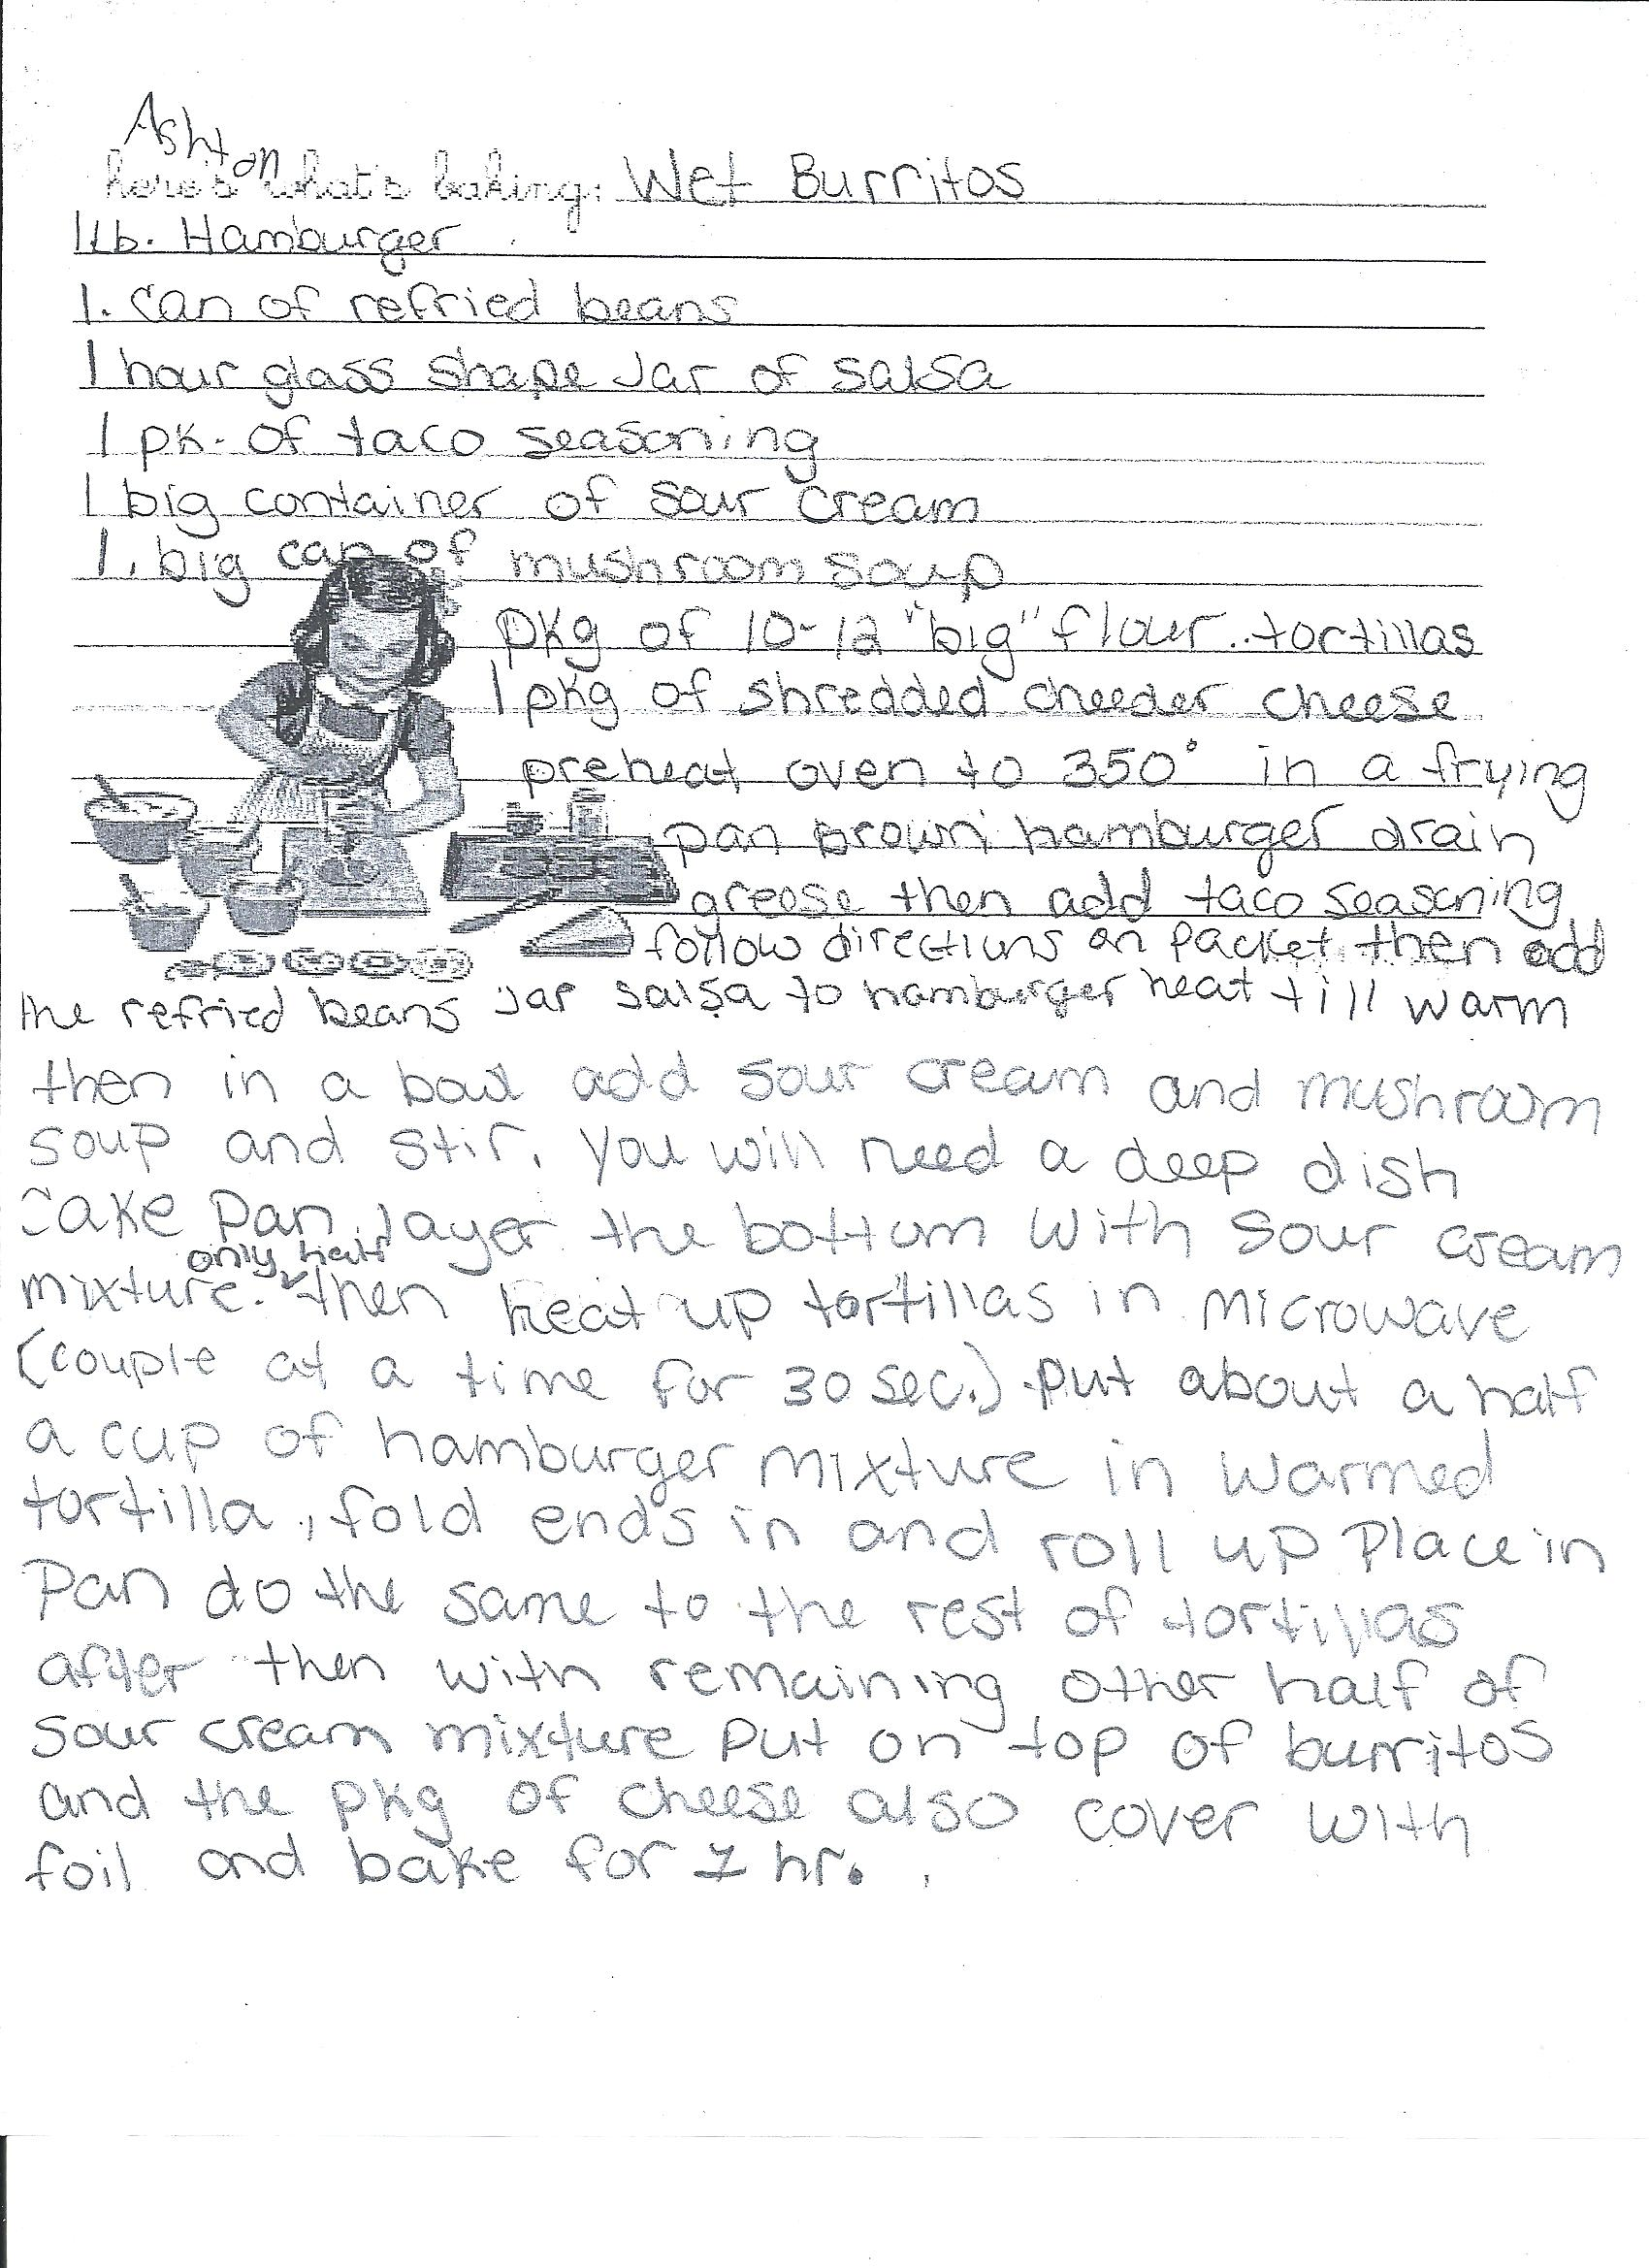 Ashton
here's what's baking: Wet Burritos
1 lb. Hamburger
1. can of refried beans
1 hour glass shape Jar of salsa
1 pk. of taco seasoning
1 big container of sour cream
1. big can of mushroom soup
pkg of 10-12 "big" flour tortillas
1 pkg of shredded cheeder cheese
preheat oven to 350° in a frying
pan brown hamburger drain
grease then add taco seasoning
follow directions on packet, then add
the refried beans Jar salsa to hamburger heat till warm
then in a bowl add sour cream and mushroom
soup and stir. You will need a deep dish
cake pan. layer the bottom with sour cream
only half
mixture. then heat up tortillas in microwave
(couple at a time for 30 sec.) put about a half
a cup of hamburger mixture in warmed
tortilla, fold ends in and roll up Place in
Pan do the same to the rest of tortillas
after then with remaining other half of
sour cream mixture put on top of burritos
and the pkg of cheese also cover with
foil and bake for 1 hr.